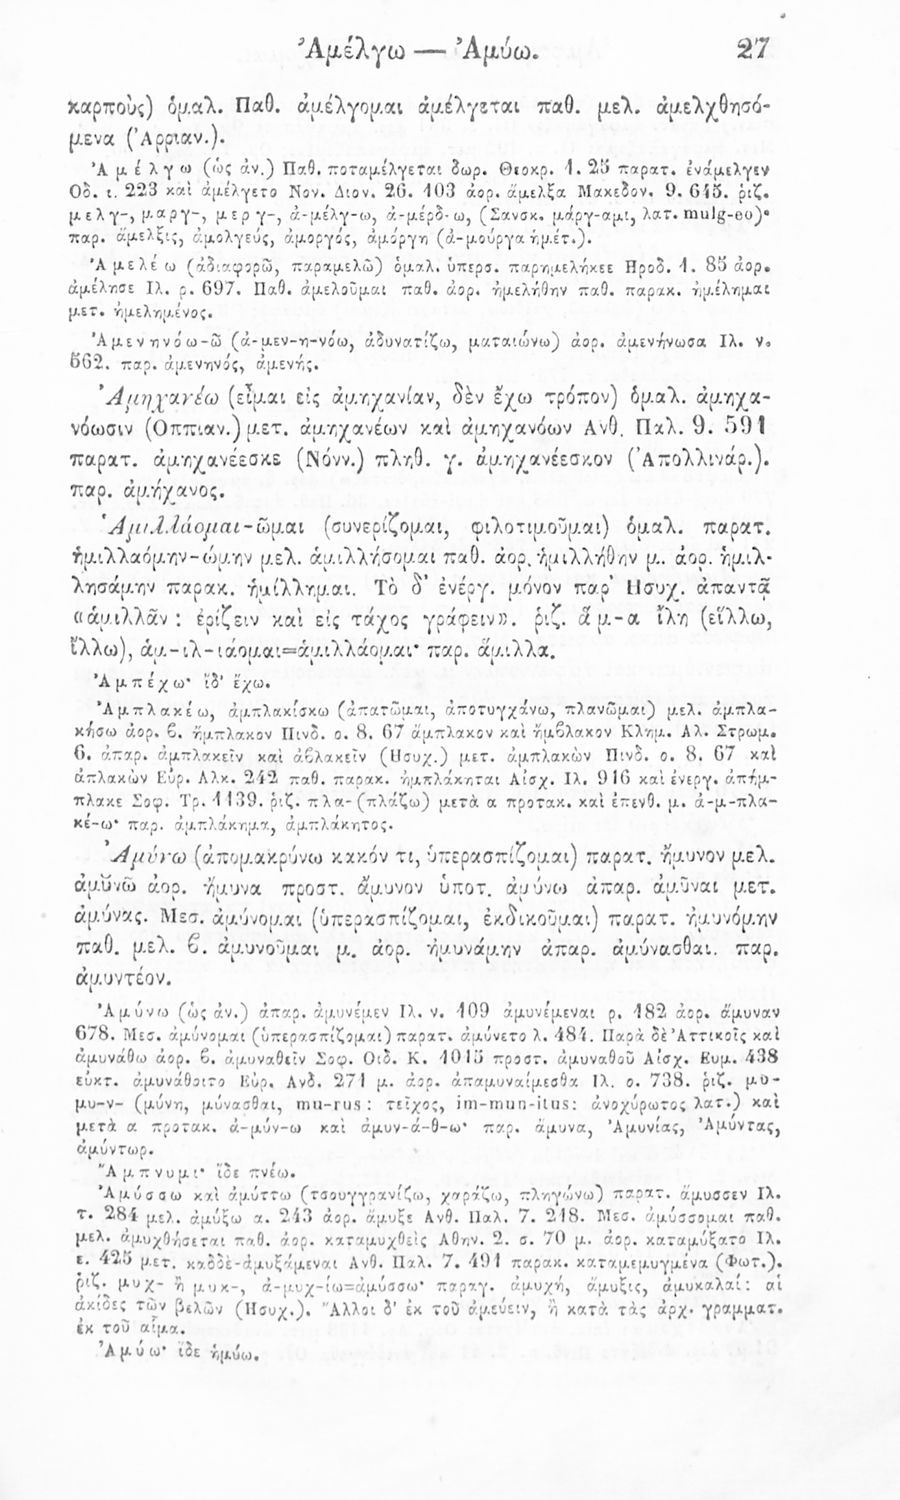 Ἀμέλγω — Ἀμύω. 27
καρποὺς) ὁμαλ. Παθ. ἀμέλγομαι ἀμέλγεται παθ. μελ. ἀμελχθησό-
μενα (Ἀρριαν.).
Ἀμέλγω (ὡς ἀν.) Παθ. ποταμέλγεται δωρ. Θεοκρ. 1. 25 παρατ. ἐνάμελγεν
Οδ. ι. 223 καὶ ἀμέλγετο Νον. Διον. 26. 103 ἀορ. ἄμελξα Μακεδον. 9. 645. ῥιζ.
μελγ-, μαργ-, μεργ-, ἀ-μέλγ-ω, ἀ-μέρδ-ω, (Σανσκ. μάργ-αμι, λατ. mulg-eo)·
παρ. ἄμελξις, ἀμολγεύς, ἀμοργός, ἀμόργη (ἀ-μούργα ἡμέτ.).
Ἀμελέω (ἀδιαφορῶ, παραμελῶ) ὁμαλ. ὑπερσ. παρημελήκεε Ηροδ. 1. 85 ἀορ.
ἀμέλησε Ιλ. ρ. 697. Παθ. ἀμελοῦμαι παθ. ἀορ. ἠμελήθην παθ. παρακ. ἠμέλημαι
μετ. ἠμελημένος.
Ἀμενηνόω-ῶ (ἀ-μεν-η-νόω, ἀδυνατίζω, ματαιώνω) ἀορ. ἀμενήνωσα Ιλ. ν.
562. παρ. ἀμενηνός, ἀμενής.
Ἀμηχανέω (εἶμαι εἰς ἀμηχανίαν, δὲν ἔχω τρόπον) ὁμαλ. ἀμηχα-
νόωσιν (Οππιαν.) μετ. ἀμηχανέων καὶ ἀμηχανόων Ανθ. Παλ. 9. 591
παρατ. ἀμηχανέεσκε (Νόνν.) πληθ. γ. ἀμηχανέεσκον (Ἀπολλινάρ.).
παρ. ἀμήχανος.
Ἁμιλλάομαι-ῶμαι (συνερίζομαι, φιλοτιμοῦμαι) ὁμαλ. παρατ.
ἡμιλλαόμην-ώμην μελ. ἁμιλλήσομαι παθ. ἀορ. ἡμιλλήθην μ. ἀορ. ἡμιλ-
λησάμην παρακ. ἡμίλλημαι. Τὸ δ' ἐνέργ. μόνον παρ' Ησυχ. ἀπαντᾷ
«ἁμιλλᾶν : ἐρίζειν καὶ εἰς τάχος γράφειν». ῥιζ. ἅμ-α ἴλη (εἴλλω,
ἴλλω), ἁμ-ιλ-ιάομαι=ἁμιλλάομαι· παρ. ἅμιλλα.
Ἀμπέχω· ἴδ' ἔχω.
Ἀμπλακέω, ἀμπλακίσκω (ἀπατῶμαι, ἀποτυγχάνω, πλανῶμαι) μελ. ἀμπλα-
κήσω ἀορ. β. ἤμπλακον Πινδ. ο. 8. 67 ἄμπλακον καὶ ἤμβλακον Κλημ. Αλ. Στρωμ.
6. ἀπαρ. ἀμπλακεῖν καὶ ἀβλακεῖν (Ησυχ.) μετ. ἀμπλακὼν Πινδ. ο. 8. 67 καὶ
ἀπλακὼν Εὐρ. Αλκ. 242 παθ. παρακ. ἠμπλάκηται Αἰσχ. Ικ. 916 καὶ ἐνεργ. ἀπήμ-
πλακε Σοφ. Τρ. 1139. ῥιζ. πλα- (πλάζω) μετὰ α προτακ. καὶ ἐπενθ. μ. ἀ-μ-πλα-
κέ-ω· παρ. ἀμπλάκημα, ἀμπλάκητος.
Ἀμύνω (ἀπομακρύνω κακόν τι, ὑπερασπίζομαι) παρατ. ἤμυνον μελ.
ἀμυνῶ ἀορ. ἤμυνα προστ. ἄμυνον ὑποτ. ἀμύνω ἀπαρ. ἀμῦναι μετ.
ἀμύνας. Μεσ. ἀμύνομαι (ὑπερασπίζομαι, ἐκδικοῦμαι) παρατ. ἠμυνόμην
παθ. μελ. β. ἀμυνοῦμαι μ. ἀορ. ἠμυνάμην ἀπαρ. ἀμύνασθαι. παρ.
ἀμυντέον.
Ἀμύνω (ὡς ἀν.) ἀπαρ. ἀμυνέμεν Ιλ. ν. 109 ἀμυνέμεναι ρ. 182 ἀορ. ἄμυναν
678. Μεσ. ἀμύνομαι (ὑπερασπίζομαι) παρατ. ἀμύνετο λ. 484. Παρὰ δὲ Ἀττικοῖς καὶ
ἀμυνάθω ἀορ. β. ἀμυναθεῖν Σοφ. Οιδ. Κ. 1015 προστ. ἀμυναθοῦ Αἰσχ. Ευμ. 438
εὐκτ. ἀμυνάθοιτο Εὐρ. Ανδ. 271 μ. ἀορ. ἀπαμυναίμεσθα Ιλ. ο. 738. ῥιζ. μυ-
μυ-ν- (μύνη, μύνασθαι, mu-rus : τεῖχος, im-mun-itus: ἀνοχύρωτος λατ.) καὶ
μετὰ α προτακ. ἀ-μύν-ω καὶ ἀμυν-ά-θ-ω· παρ. ἄμυνα, Ἀμυνίας, Ἀμύντας,
ἀμύντωρ.
Ἄμπνυμι· ἴδε πνέω.
Ἀμύσσω καὶ ἀμύττω (τσουγγρανίζω, χαράζω, πληγώνω) παρατ. ἄμυσσεν Ιλ.
τ. 284 μελ. ἀμύξω α. 243 ἀορ. ἄμυξε Ανθ. Παλ. 7. 218. Μεσ. ἀμύσσομαι παθ.
μελ. ἀμυχθήσεται παθ. ἀορ. καταμυχθεὶς Αθην. 2. σ. 70 μ. ἀορ. καταμύξατο Ιλ.
ε. 425 μετ. καδδὲ-ἀμυξάμεναι Ανθ. Παλ. 7. 491 παρακ. καταμεμυγμένα (Φωτ.).
ῥιζ. μυχ- ἢ μυκ-, ἀ-μυχ-ίω=ἀμύσσω· παραγ. ἀμυχή, ἄμυξις, ἀμυκαλαί: αἱ
ἀκίδες τῶν βελῶν (Ησυχ.). Ἄλλοι δ' ἐκ τοῦ ἀμεύειν, ἢ κατὰ τὰς ἀρχ. γραμματ.
ἐκ τοῦ αἷμα.
Ἀμύω· ἴδε ἠμύω.